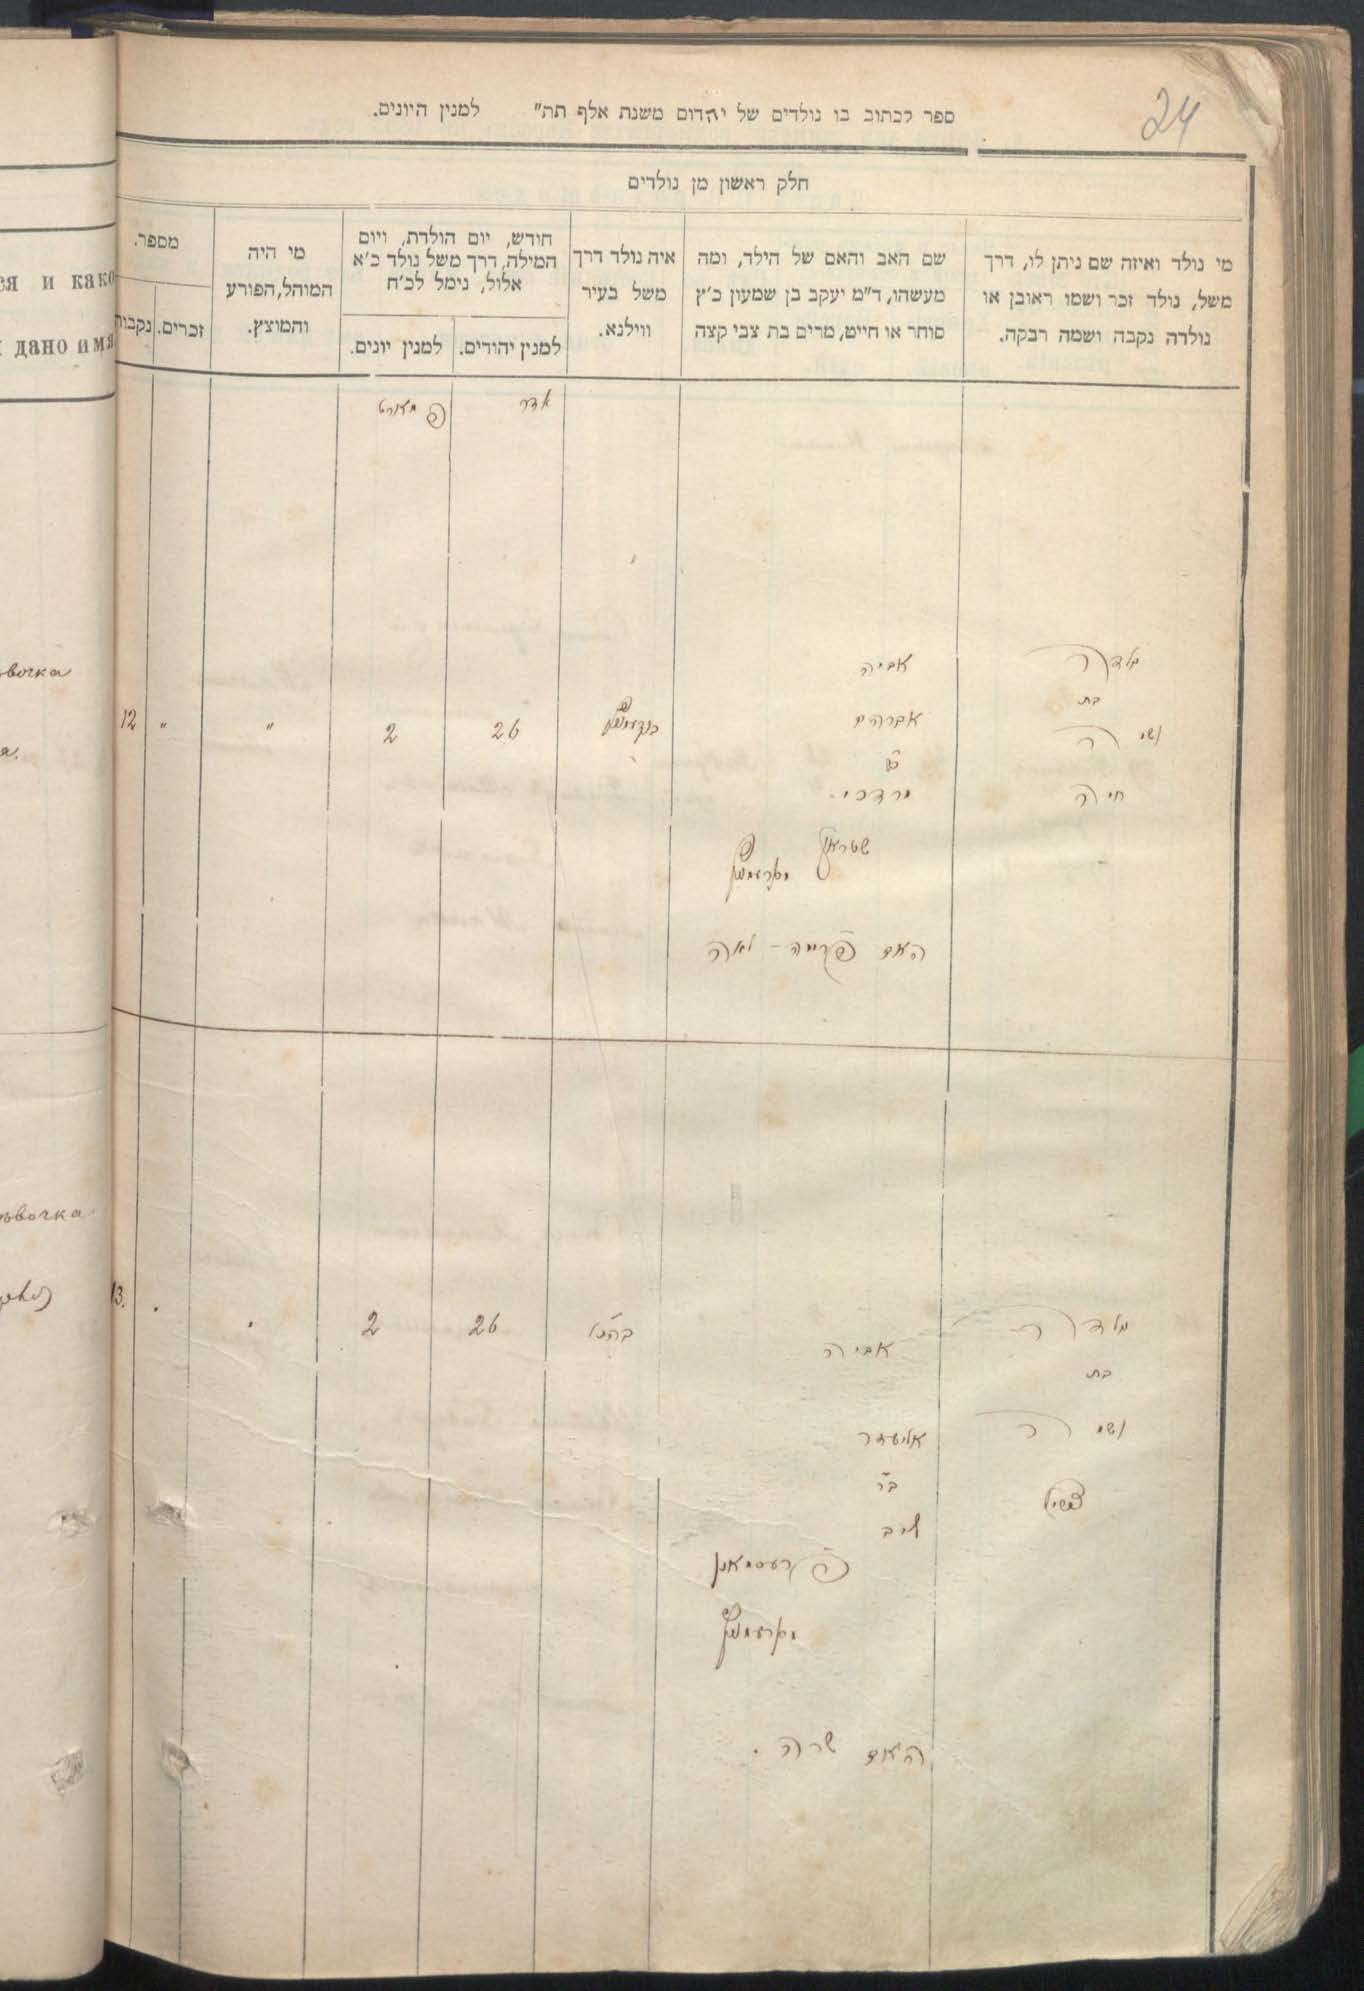 24
ספר לכתוב בו נולדים של יהדום משנת אלף תת״ למנין היונים.
חלק ראשון מן נולדים
מי נולד ואיזה שם ניתן לו, דרך
משל, נולד זכר ושמו ראובן או
נולדה נקבה ושמה רבקה.
שם האב והאם של הילד, ומה
מעשהו, ד״מ יעקב בן שמעון כ׳ץ
סוחר או חייט, מרים בת צבי קצה
איה נולד דרך
משל בעיר
ווילנא.
חודש, יום הולדת, ויום
המילה, דרך משל נולד כ׳א
אלול, נימל לכ׳ח
למנין יהודים.
למנין יונים.
מי היה
המוהל, הפורע
והמוצץ.
מספר.
זכרים.
נקבות
ся и како
дано имя
אדר
נולדה
בת
ושמה
חיה
אביה
אברהם
מרדכי.
האם
לאה
26
2
"
"
12
вочка
а.
נולדה
בת
ושמה
אביה
אליעזר
ב״ר
ליב
האם שרה.
26
2
13.
вочка